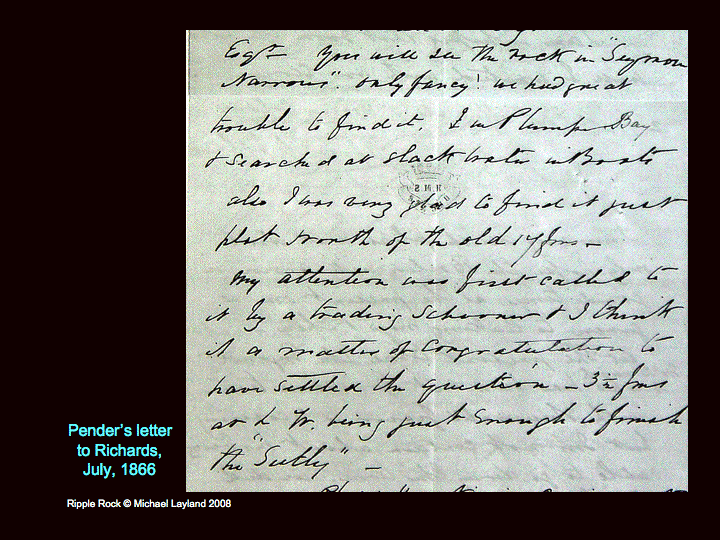 Esqre You will see the rock in "Seymour
Narrows". only fancy! we had great
trouble to find it, I in Plumper Bay
& searched at slack water in Boats
also I was very glad to find it just
plat north of the old 17 fms –
my attention was first called to
it by a trading Schooner & I think
it a matter of congratulation to
have settled the question – 3½ fms
at L W. being just enough to finish
the "Sutlej" –
HMS
Pender's letter
to Richards,
July, 1866
Ripple Rock © Michael Layland 2008